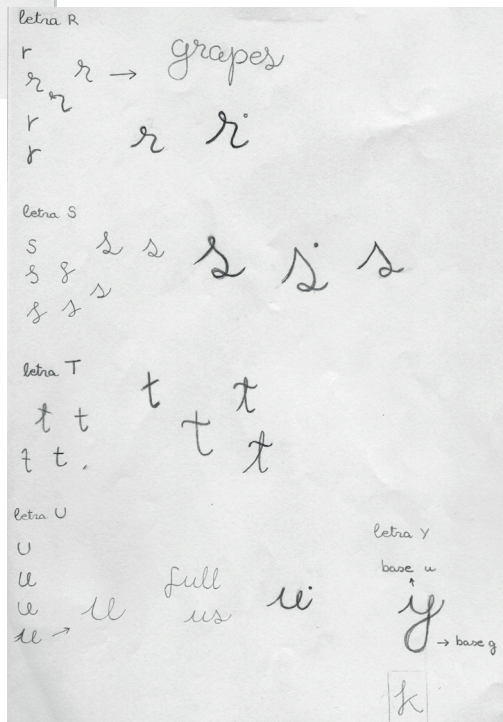 letra R
r
r r → grapes
r
r
r r r
letra S
s s s s s s
s s s
s s s
letra T
t t
t t t t
t t . t
letra U
U
u
u u full
u → us u
letra Y
base u
y → base g
k